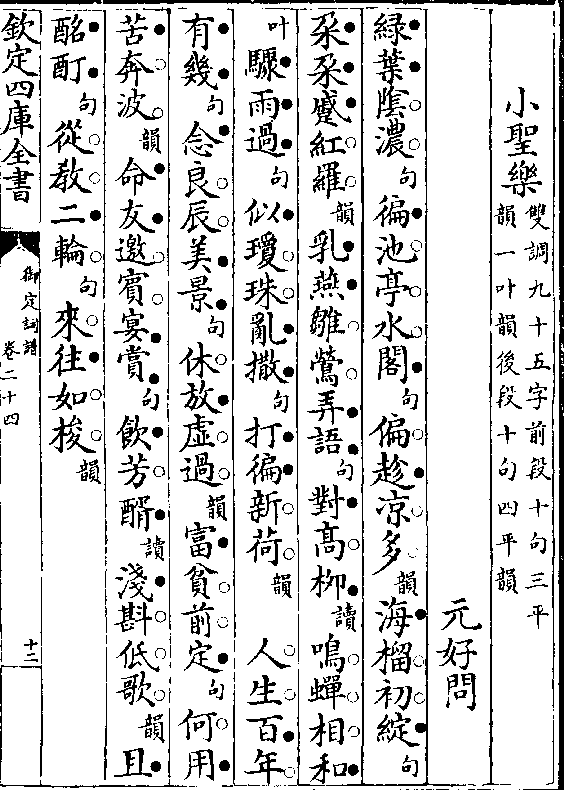 小聖樂雙調九十五字前段十句三平
韻一叶韻後段十句四平韻
元好問
綠葉陰濃句徧池亭水閣句偏趁凉多韻海榴初綻句
朶朶蹙紅羅韻乳燕雛鶯弄語句對髙柳讀鳴蟬相和
叶驟雨過句似瓊珠亂撒句打徧新荷韻 人生百年
有幾句念良辰美景句休放虛過韻富貧前定句何用
苦奔波韻命友邀賓宴賞句飲芳醑讀淺斟低歌韻且
酩酊句從教二輪句來往如梭韻
欽定四庫全書
御定詞譜
卷二十四
十二